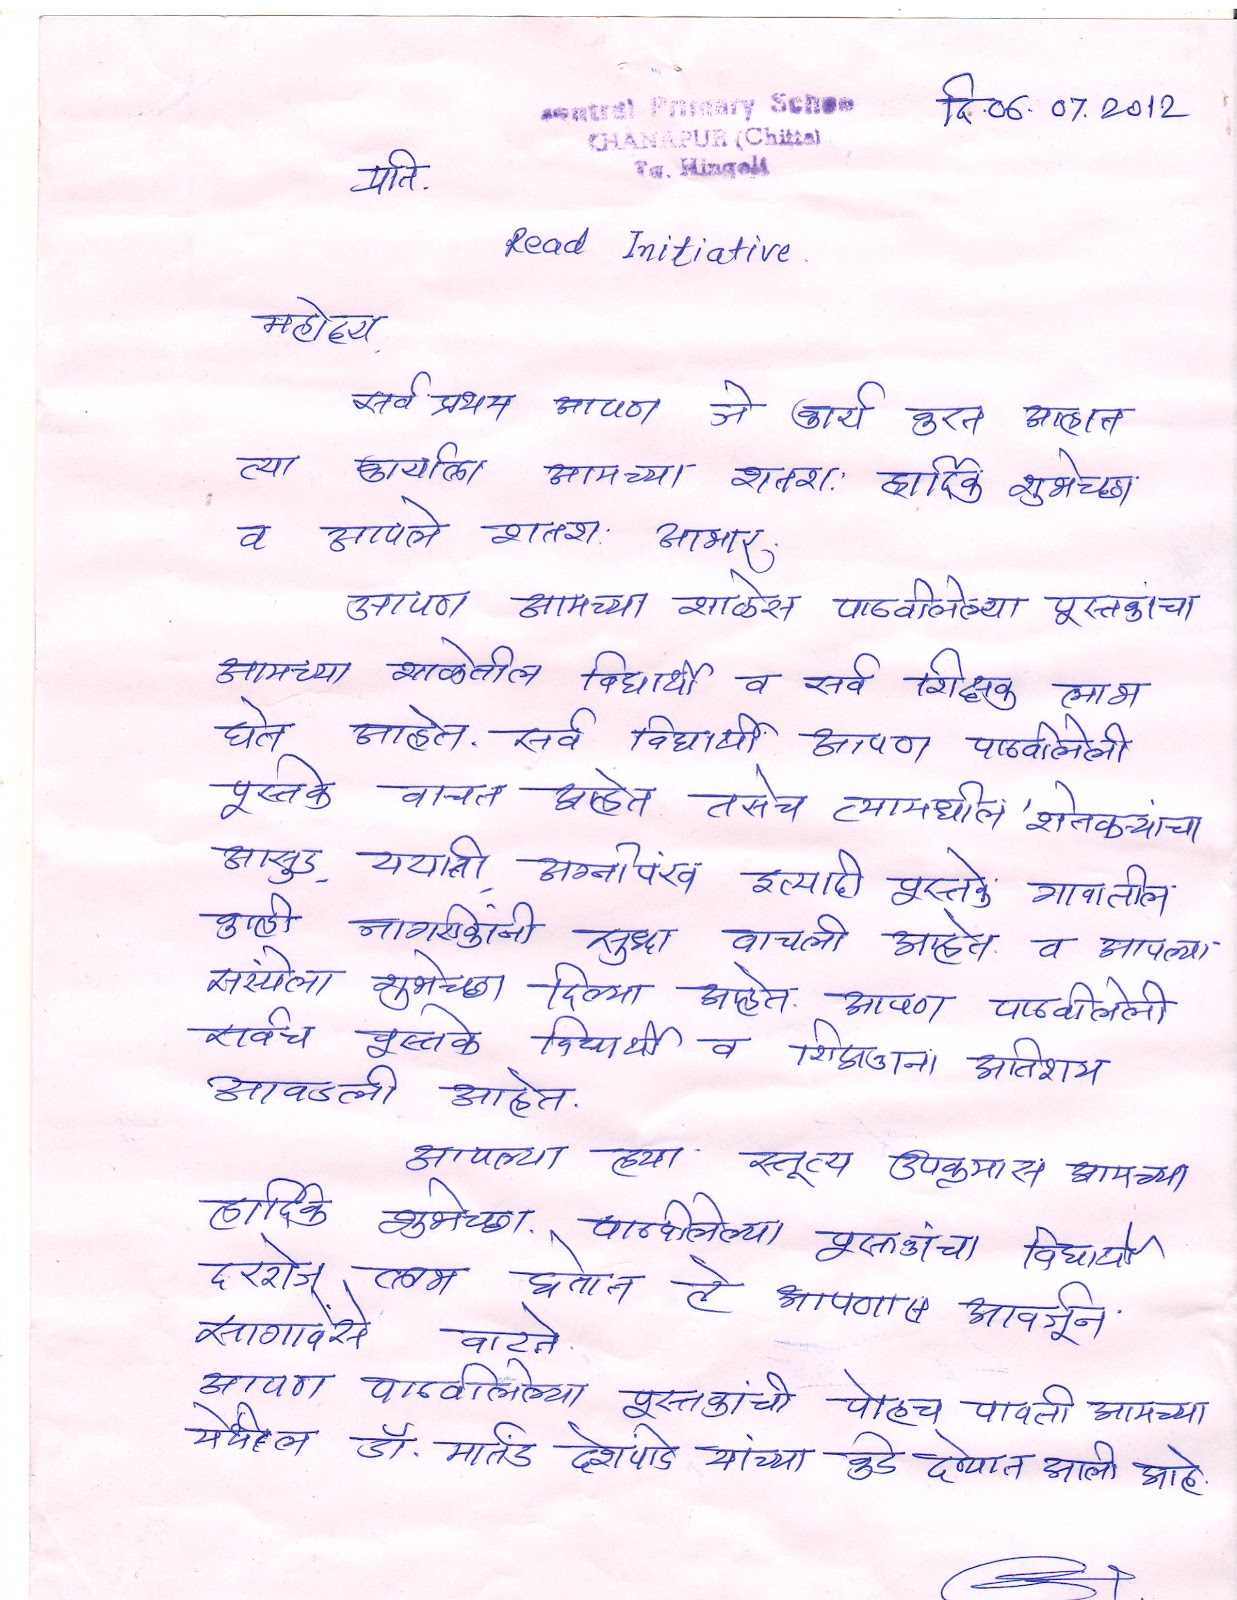 दि.06.07.2012
Central Primary Schoo
KHANAPUR (Chitta)
Tq. Hingoli
प्रति.
Read Initiative.
महोदय,
सर्व प्रथम आपण जे कार्य करत आहात
त्या कार्याला आमच्या शतशः हार्दिक शुभेच्छा
व आपले शतशः आभार.
आपण आमच्या शाळेस पाठवीलेल्या पूस्तकांचा
आमच्या शाळेतील विद्यार्थी व सर्व शिक्षक लाभ
घेत आहेत. सर्व विद्यार्थी आपण पाठवीलेली
पूस्तके वाचत आहेत तसेच त्यामधील 'शेतकऱ्यांचा
आसुड, ययाती, अग्नीपंख इत्यादी पूस्तके गावातील
काही नागरीकांनी सुध्दा वाचली आहेत. व आपल्या
संस्थेला शुभेच्छा दिल्या आहेत. आपण पाठवीलेली
सर्वच पूस्तके विद्यार्थी व शिक्षकांना अतिशय
आवडली आहेत.
आपल्या ह्या स्तूत्य उपक्रमास आमच्या
हार्दिक शुभेच्छा. पाठवीलेल्या पूस्तकांचा विद्यार्थी
दररोज लाभ घेतात हे आपणास आवर्जून
सागावेसे वाटते.
आपण पाठवीलेल्या पूस्तकांची पोहच पावती आमच्या
येथील डॉ. मार्तंड देशपांडे यांच्या कडे देण्यात आली आहे.